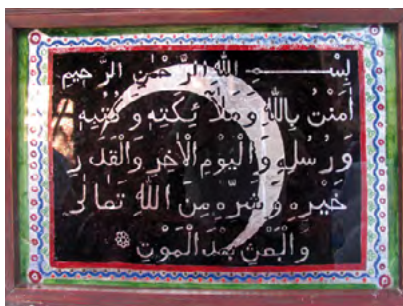 بِسْمِ اللهِ الرَّحْمٰنِ الرَّحِيْمِ
اٰمَنْتُ بِاللهِ وَمَلَآئِكَتِهٖ وَكُتُبِهٖ
وَرُسُلِهٖ وَالْيَوْمِ الْاٰخِرِ وَالْقَدْرِ
خَيْرِهٖ وَشَرِّهٖ مِنَ اللهِ تَعَالٰى
وَالْبَعْثِ بَعْدَ الْمَوْتِ